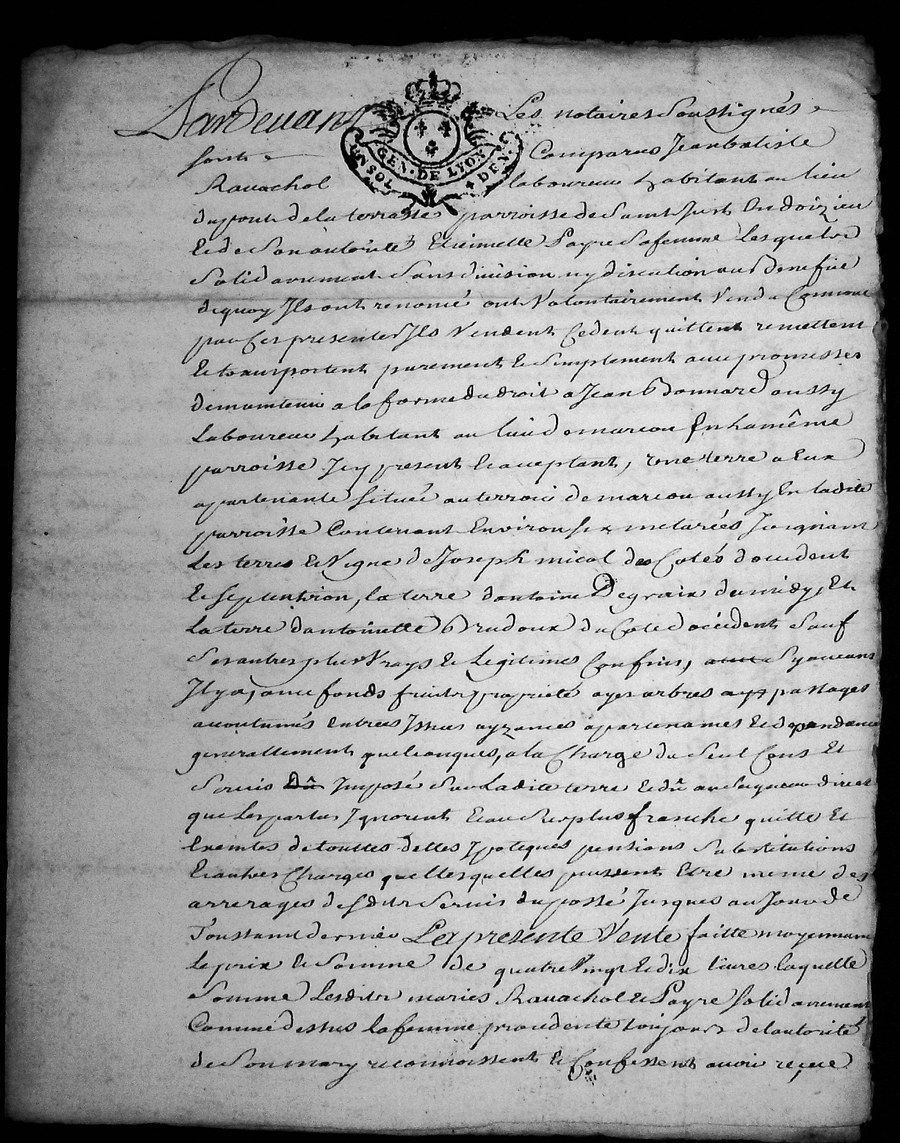 Pardevant Les notaires Soussignés
GEN. DE LYON
UN SOL
DEN.
sont Comparus Jeanbatiste
Ravachol laboureur habitant au lieu
du pont de la terrasse parroisse de Saint Just En doizieu
Et de Son autorité Etiennette Payre Sa femme Lesquels
Solidairement Sans division ny discution au Benefice
de quoy Ils ont renoncé ont Volontairement Vendu Comme
par Ces presentes Ils Vendent Cedent quittent remettent
Et transportent purement Et Simplement avec promesses
de maintenir a la forme du droit a Jean Bonnard aussy
Laboureur habitant au lieu de marcou En la même
parroisse Icy present Et acceptant, une terre a Eux
apartenante Située au terroir de marcou aussy En ladite
parroisse Contenant Environ Six meterées Joignant
Les terres Et Vigne de Joseph micol des Cotés d'occident
Et Septentrion, la terre d'antoine Degraix du midy, Et
La terre d'antoinette Brudoux du Coté d'occident Sauf
Ses autres plus Vrays Et Legitimes Confins, Sy aucuns
Il y a, avec fonds fruits propriété ayes arbres passages
acoutumés Entrées Issues ayzances apartenances Et dependances
generallement quelconques, a la Charge du Seul Cens Et
Servis Imposé Sur Ladite terre Et dû au Seigneur direct
que Les parties Ignorent Et au Surplus franche quitte Et
Exempte de touttes dettes Ipoteques pensions Substitutions
Et autres Charges quelles quelles puissent Etre meme des
arrerages desdits Servis du passé Jusques au Jour de
Toussaint dernier La presente Vente faitte moyennant
Le prix Et Somme de quatre Vingt Et dix livres laquelle
Somme Lesdits mariés Ravachol Et Payre Solidairement
Comme dessus la femme procedente toujours de l'autorité
de Son mary reconnoissent Et Confessent avoir reçeu